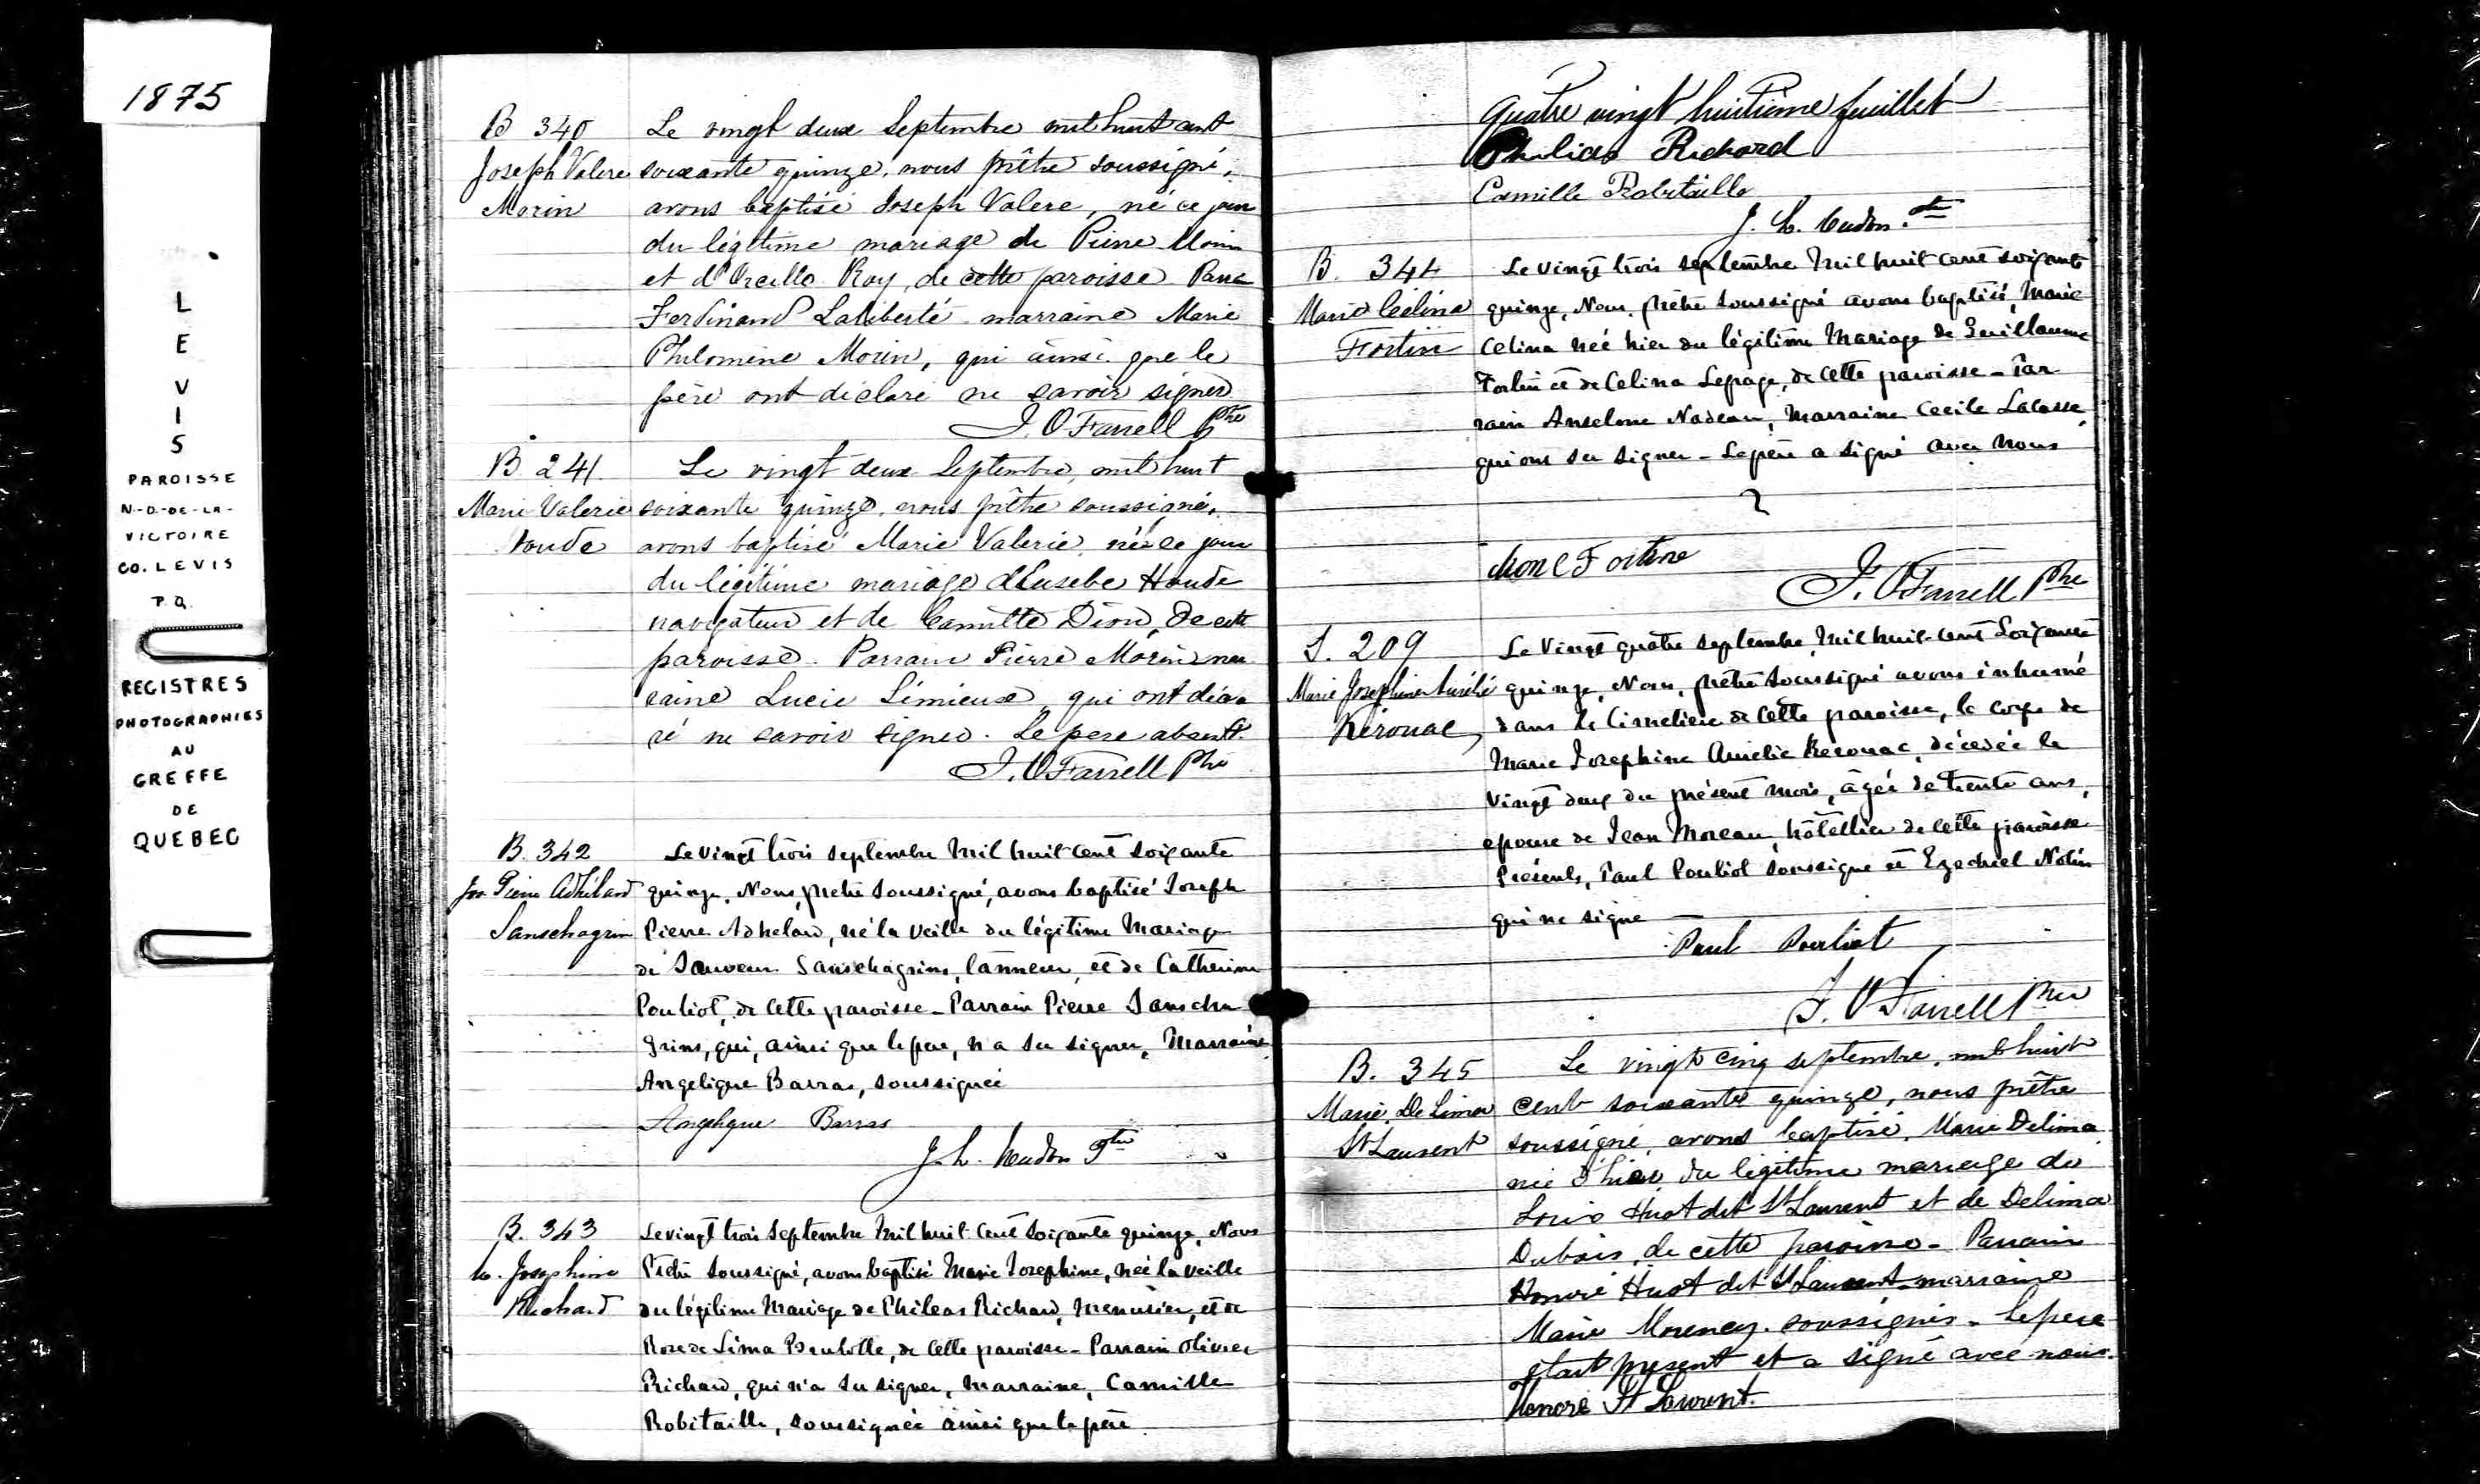 1875
L
E
V
I
S
PAROISSE
N.-D.-DE-LA-
VICTOIRE
CO. LEVIS
P.Q.
REGISTRES
PHOTOGRAPHIES
AU
GREFFE
DE
QUEBEC
B 340
Joseph Valere
Morin
Le vingt deux Septembre mil huit cent
soixante quinze, nous prêtre soussigné,
avons baptisé Joseph Valere, né ce jour
du légitime mariage de Pierre Morin
et d'Ircille Roy, de cette paroisse Parr
Ferdinand Laliberté marraine Marie
Philomène Morin, qui ainsi que le
père ont déclaré ne savoir signer
J. O Farrell Ptre
B 241.
Marie Valerie
Houde
Le vingt deux Septembre, mil huit
soixante quinze, nous prêtre soussigné,
avons baptisé Marie Valerie, née ce jour
du légitime mariage d'Eusebe Houde
navigateur et de Camille Dion, de cette
paroisse. Parrain Pierre Morin mar
raine Lucie Lemieux qui ont décla
ré ne savoir signer. Le pere absent.
J. O Farrell Ptre
B. 342
Jos. Pierre Adhélard
Sanschagrin
Le vingt trois septembre Mil huit cent soixante
quinze, Nous, prêtre soussigné, avons baptisé Joseph
Pierre Adhelard, né la veille du légitime Mariage
de Sauveur Sanschagrins, tanneur, et de Catherine
Pouliot, de cette paroisse - Parrain Pierre Sanscha
grins, qui, ainsi que le père, n'a su signer, Marraine
Angelique Barras, soussignée
Angelique Barras
J. h. Ptre
B. 343
M. Josephine
Richard
Le vingt trois Septembre Mil huit cent soixante quinze, Nous
Prêtre soussigné, avons baptisé Marie Josephine, née la veille
du légitime Mariage de Phileas Richard, Menuisier, et de
Rose de Lima, de cette paroisse - Parrain Olivier
Richard, qui n'a su signer, Marraine, Camille
Robitaille, soussignée ainsi que le père
Quatre vingt huitième feuillet
Philias Richard
Camille Robitaille
J. h. Ptre
B. 344
Marie Célina
Fortin
Le vingt trois septembre Mil huit cent soixante
quinze, Nous, prêtre soussigné avons baptisé, Marie
Celina née hier du légitime Mariage de Guillaume
Fortin et de Celina Lepage, de cette paroisse - Par
rain Anselme Nadeau, Marraine Cecile Lacasse,
qui ont su signer - Le père a signé avec nous
Fortin
J. O Farrell Ptre
S. 209
Marie Josephine Aurélie
Kérouac
Le Vingt quatre septembre Mil huit cent soixante
quinze, Nous, prêtre soussigné avons inhumé
dans le Cimetière de cette paroisse, le corps de
Marie Josephine Aurelie Kerouac, décédée le
Vingt deux du présent mois, âgée de trente ans,
epouse de Jean Moreau, hôtellier de cette paroisse
Présents, Paul Pouliot soussigné et Ezechiel Nolin
qui ne signe
Paul Pouliot
J. O Farrell Ptre
B. 345
Marie De Lima
St Laurent
Le vingt cinq septembre, mil huit
cent soixante quinze, nous prêtre
soussigné, avons baptisé, Marie Delima
née d'hier du légitime mariage de
Louis Huot dit St Laurent et de Delima
Dubois, de cette paroisse - Parrain
Honoré Huot dit St Laurent marraine
Marie Morency soussignés - Le pere
était present et a signé avec nous.
Honoré St Laurent.